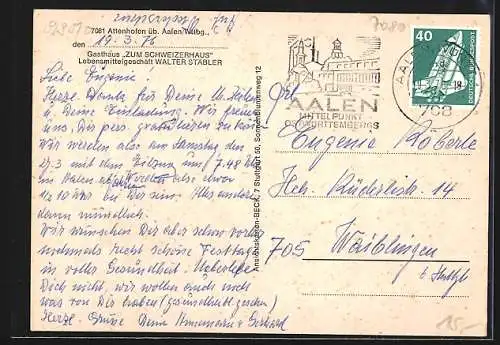 7081 Attenhofen üb. Aalen/Wttbg.
den 19.3.76
Gasthaus „ZUM SCHWEIZERHAUS"
Lebensmittelgeschäft WALTER STÄBLER
Liebe Eugenie!
Herzl. Dank für Deine lb. Karte
und Deine Einladung. Wir freuen
uns, Dir pers. gratulieren zu können.
Wir werden also am Samstag den
27.3 mit dem Eilzug um 7.48 Uhr
in Aalen also etwa
1/2 10 Uhr bei Dir sein. Alles andere
dann mündlich.
Wir wünschen Dir aber schon vorher
nochmals recht schöne Festtage
in voller Gesundheit. Überlege
Dich nicht, wir wollen auch noch
was von Dir haben (gesundheitl. gesehen)
Herzl. Grüße Deine Annemarie u. Gerhard
Ansichtskarten-BECK, 7 Stuttgart 50, Sonnenblumenweg 12
7080
AALEN
MITTELPUNKT
OSTWÜRTTEMBERGS
40
DEUTSCHE BUNDESPOST
AALEN
708
Eugenie Köberle
Hch. Rückerlistr. 14
705 Waiblingen
b Stuttgt.
15,-